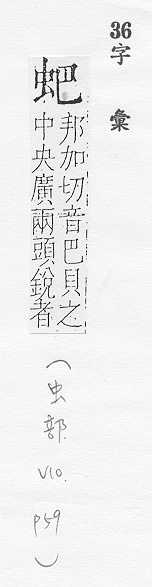 36字彙
蚆
邦加切音巴貝之
中央廣兩頭銳者
（虫部 V10. P59）